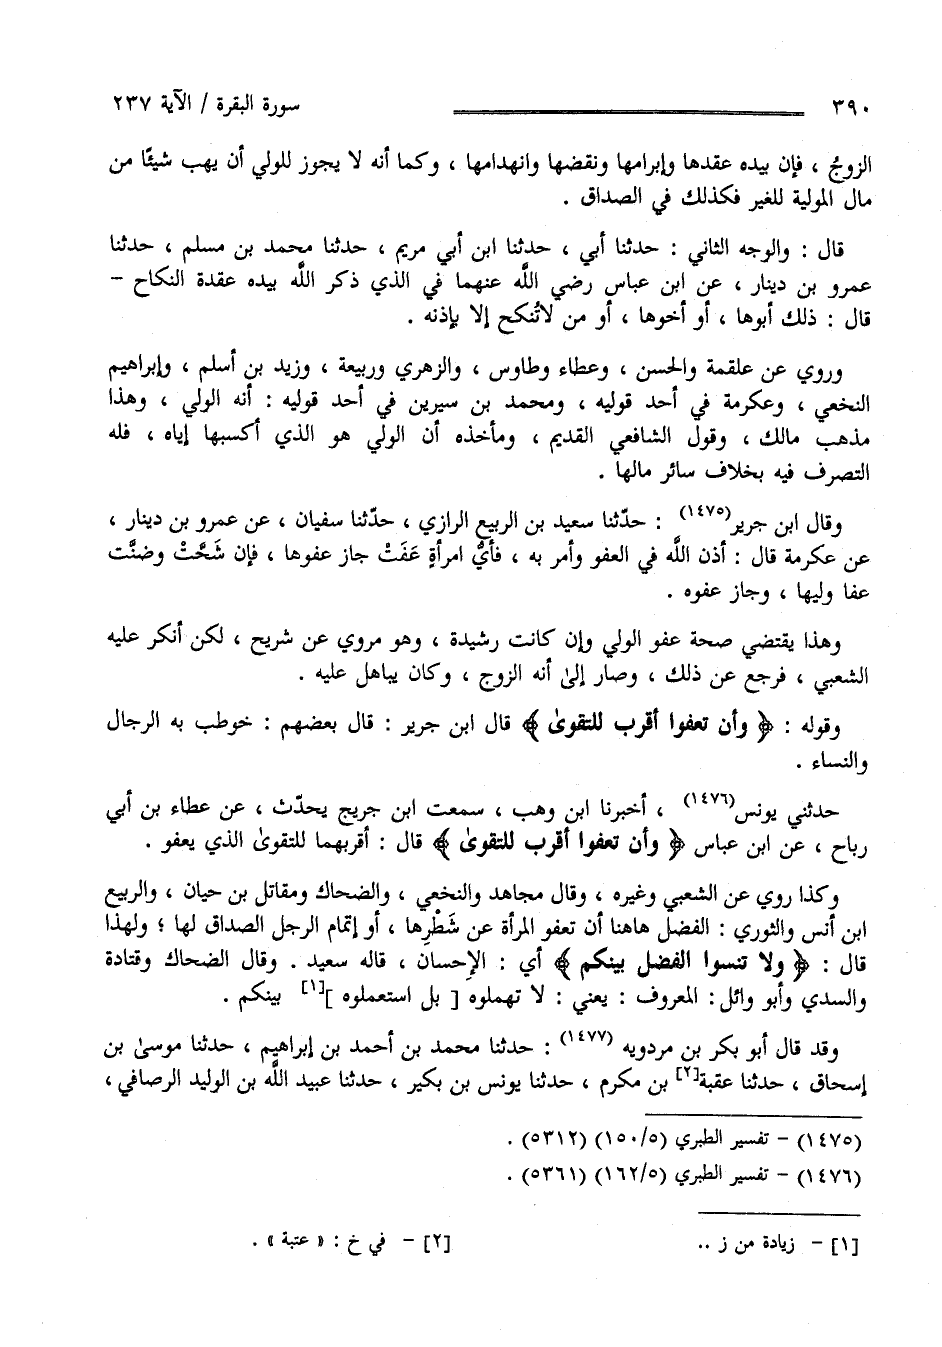 ٣٩٠ سورة البقرة / الآية ٢٣٧
الزوجُ ، فإن بيده عقدها وإبرامها ونقضها وانهدامها ، وكما أنه لا يجوز للولي أن يهب شيئًا من
مال المولية للغير فكذلك في الصداق .
قال : والوجه الثاني : حدثنا أبي ، حدثنا ابن أبي مريم ، حدثنا محمد بن مسلم ، حدثنا
عمرو بن دينار ، عن ابن عباس رضي اللَّه عنهما في الذي ذكر اللَّه بيده عقدة النكاح –
قال : ذلك أبوها ، أو أخوها ، أو من لاتُنكح إلا بإذنه .
وروي عن علقمة والحسن ، وعطاء وطاوس ، والزهري وربيعة ، وزيد بن أسلم ، وإبراهيم
النخعي ، وعكرمة في أحد قوليه ، ومحمد بن سيرين في أحد قوليه : أنه الولي ، وهذا
مذهب مالك ، وقول الشافعي القديم ، ومأخذه أن الولي هو الذي أكسبها إياه ، فله
التصرف فيه بخلاف سائر مالها .
وقال ابن جرير(١٤٧٥) : حدّثنا سعيد بن الربيع الرازي ، حدّثنا سفيان ، عن عمرو بن دينار ،
عن عكرمة قال : أذن اللَّه في العفو وأمر به ، فأيُّ امرأةٍ عَفَتْ جاز عفوها ، فإن شَحَّتْ وضنَّت
عفا وليها ، وجاز عفوه .
وهذا يقتضي صحة عفو الولي وإن كانت رشيدة ، وهو مروي عن شريح ، لكن أنكر عليه
الشعبي ، فرجع عن ذلك ، وصار إلىٰ أنه الزوج ، وكان يباهل عليه .
وقوله : ﴿ وأن تعفوا أقرب للتقوىٰ ﴾ قال ابن جرير : قال بعضهم : خوطب به الرجال
والنساء .
حدثني يونس(١٤٧٦) ، أخبرنا ابن وهب ، سمعت ابن جريج يحدّث ، عن عطاء بن أبي
رباح ، عن ابن عباس ﴿ وأن تعفوا أقرب للتقوىٰ ﴾ قال : أقربهما للتقوىٰ الذي يعفو .
وكذا روي عن الشعبي وغيره ، وقال مجاهد والنخعي ، والضحاك ومقاتل بن حيان ، والربيع
ابن أنس والثوري : الفضل هاهنا أن تعفو المرأة عن شَطْرِها ، أو إتمام الرجل الصداق لها ؛ ولهذا
قال : ﴿ ولا تنسوا الفضل بينكم ﴾ أي : الإحسان ، قاله سعيد . وقال الضحاك وقتادة
والسدي وأبو وائل : المعروف : يعني : لا تهملوه [ بل استعملوه ][١] بينكم .
وقد قال أبو بكر بن مردويه (١٤٧٧) : حدثنا محمد بن أحمد بن إبراهيم ، حدثنا موسىٰ بن
إسحاق ، حدثنا عقبة[٢] بن مكرم ، حدثنا يونس بن بكير ، حدثنا عبيد اللَّه بن الوليد الرصافي ،
(١٤٧٥) – تفسير الطبري (١٥٠/٥) (٥٣١٢) .
(١٤٧٦) – تفسير الطبري (١٦٢/٥) (٥٣٦١) .
[١] – زيادة من ز .. [٢] – في خ : « عتبة » .